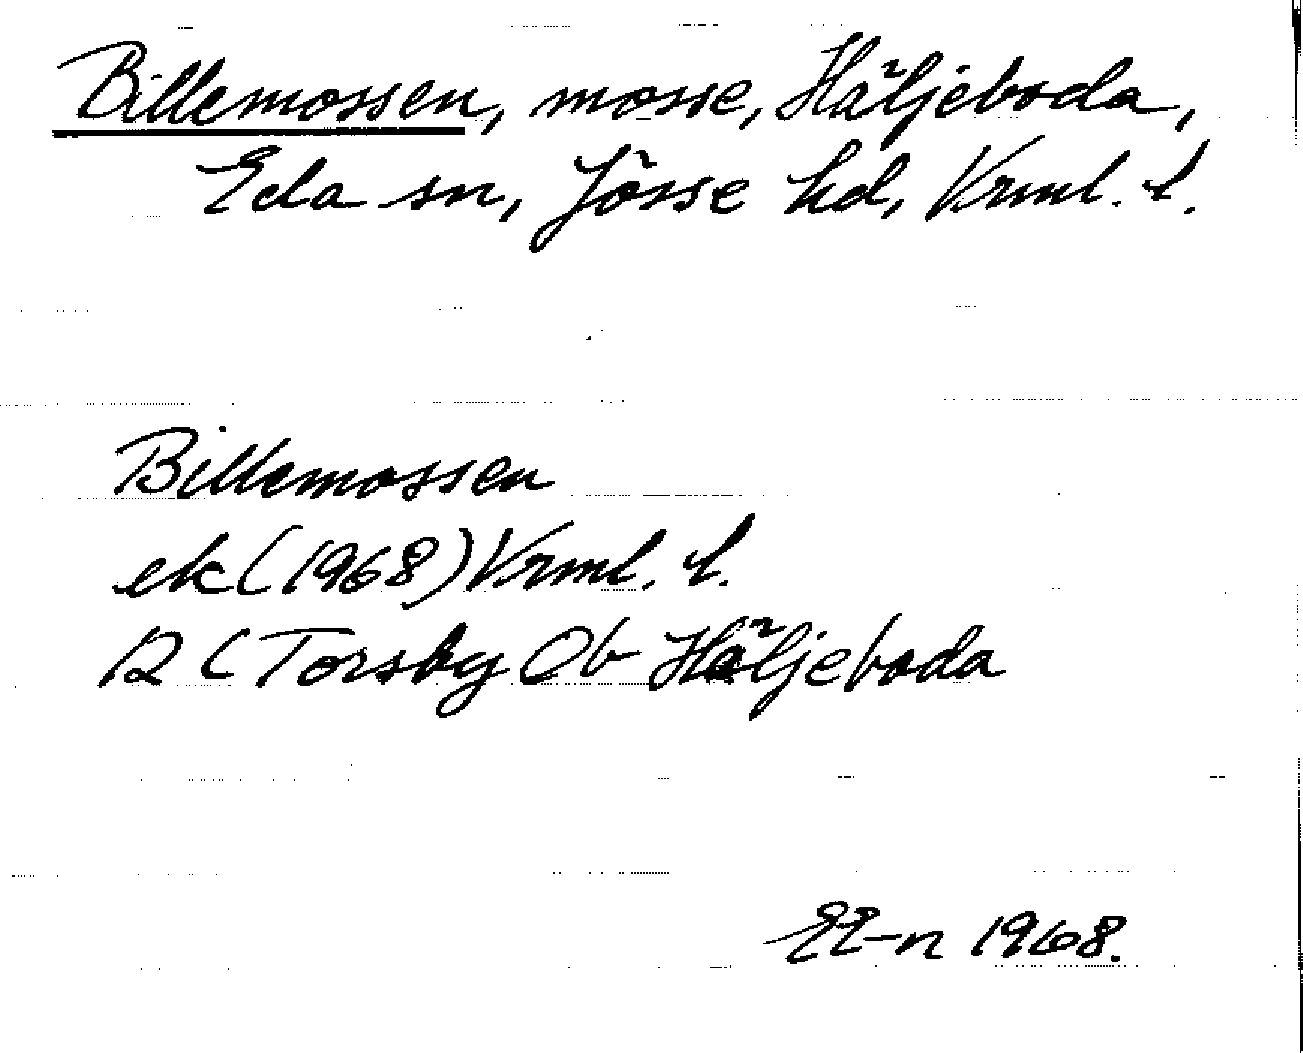 Billemossen, mosse, Häljeboda,
Eda sn, Jösse hd, Vrml. l.
Billemossen
ek (1968) Vrml. l.
12 C Torsby Ob Häljeboda
EE-n 1968.